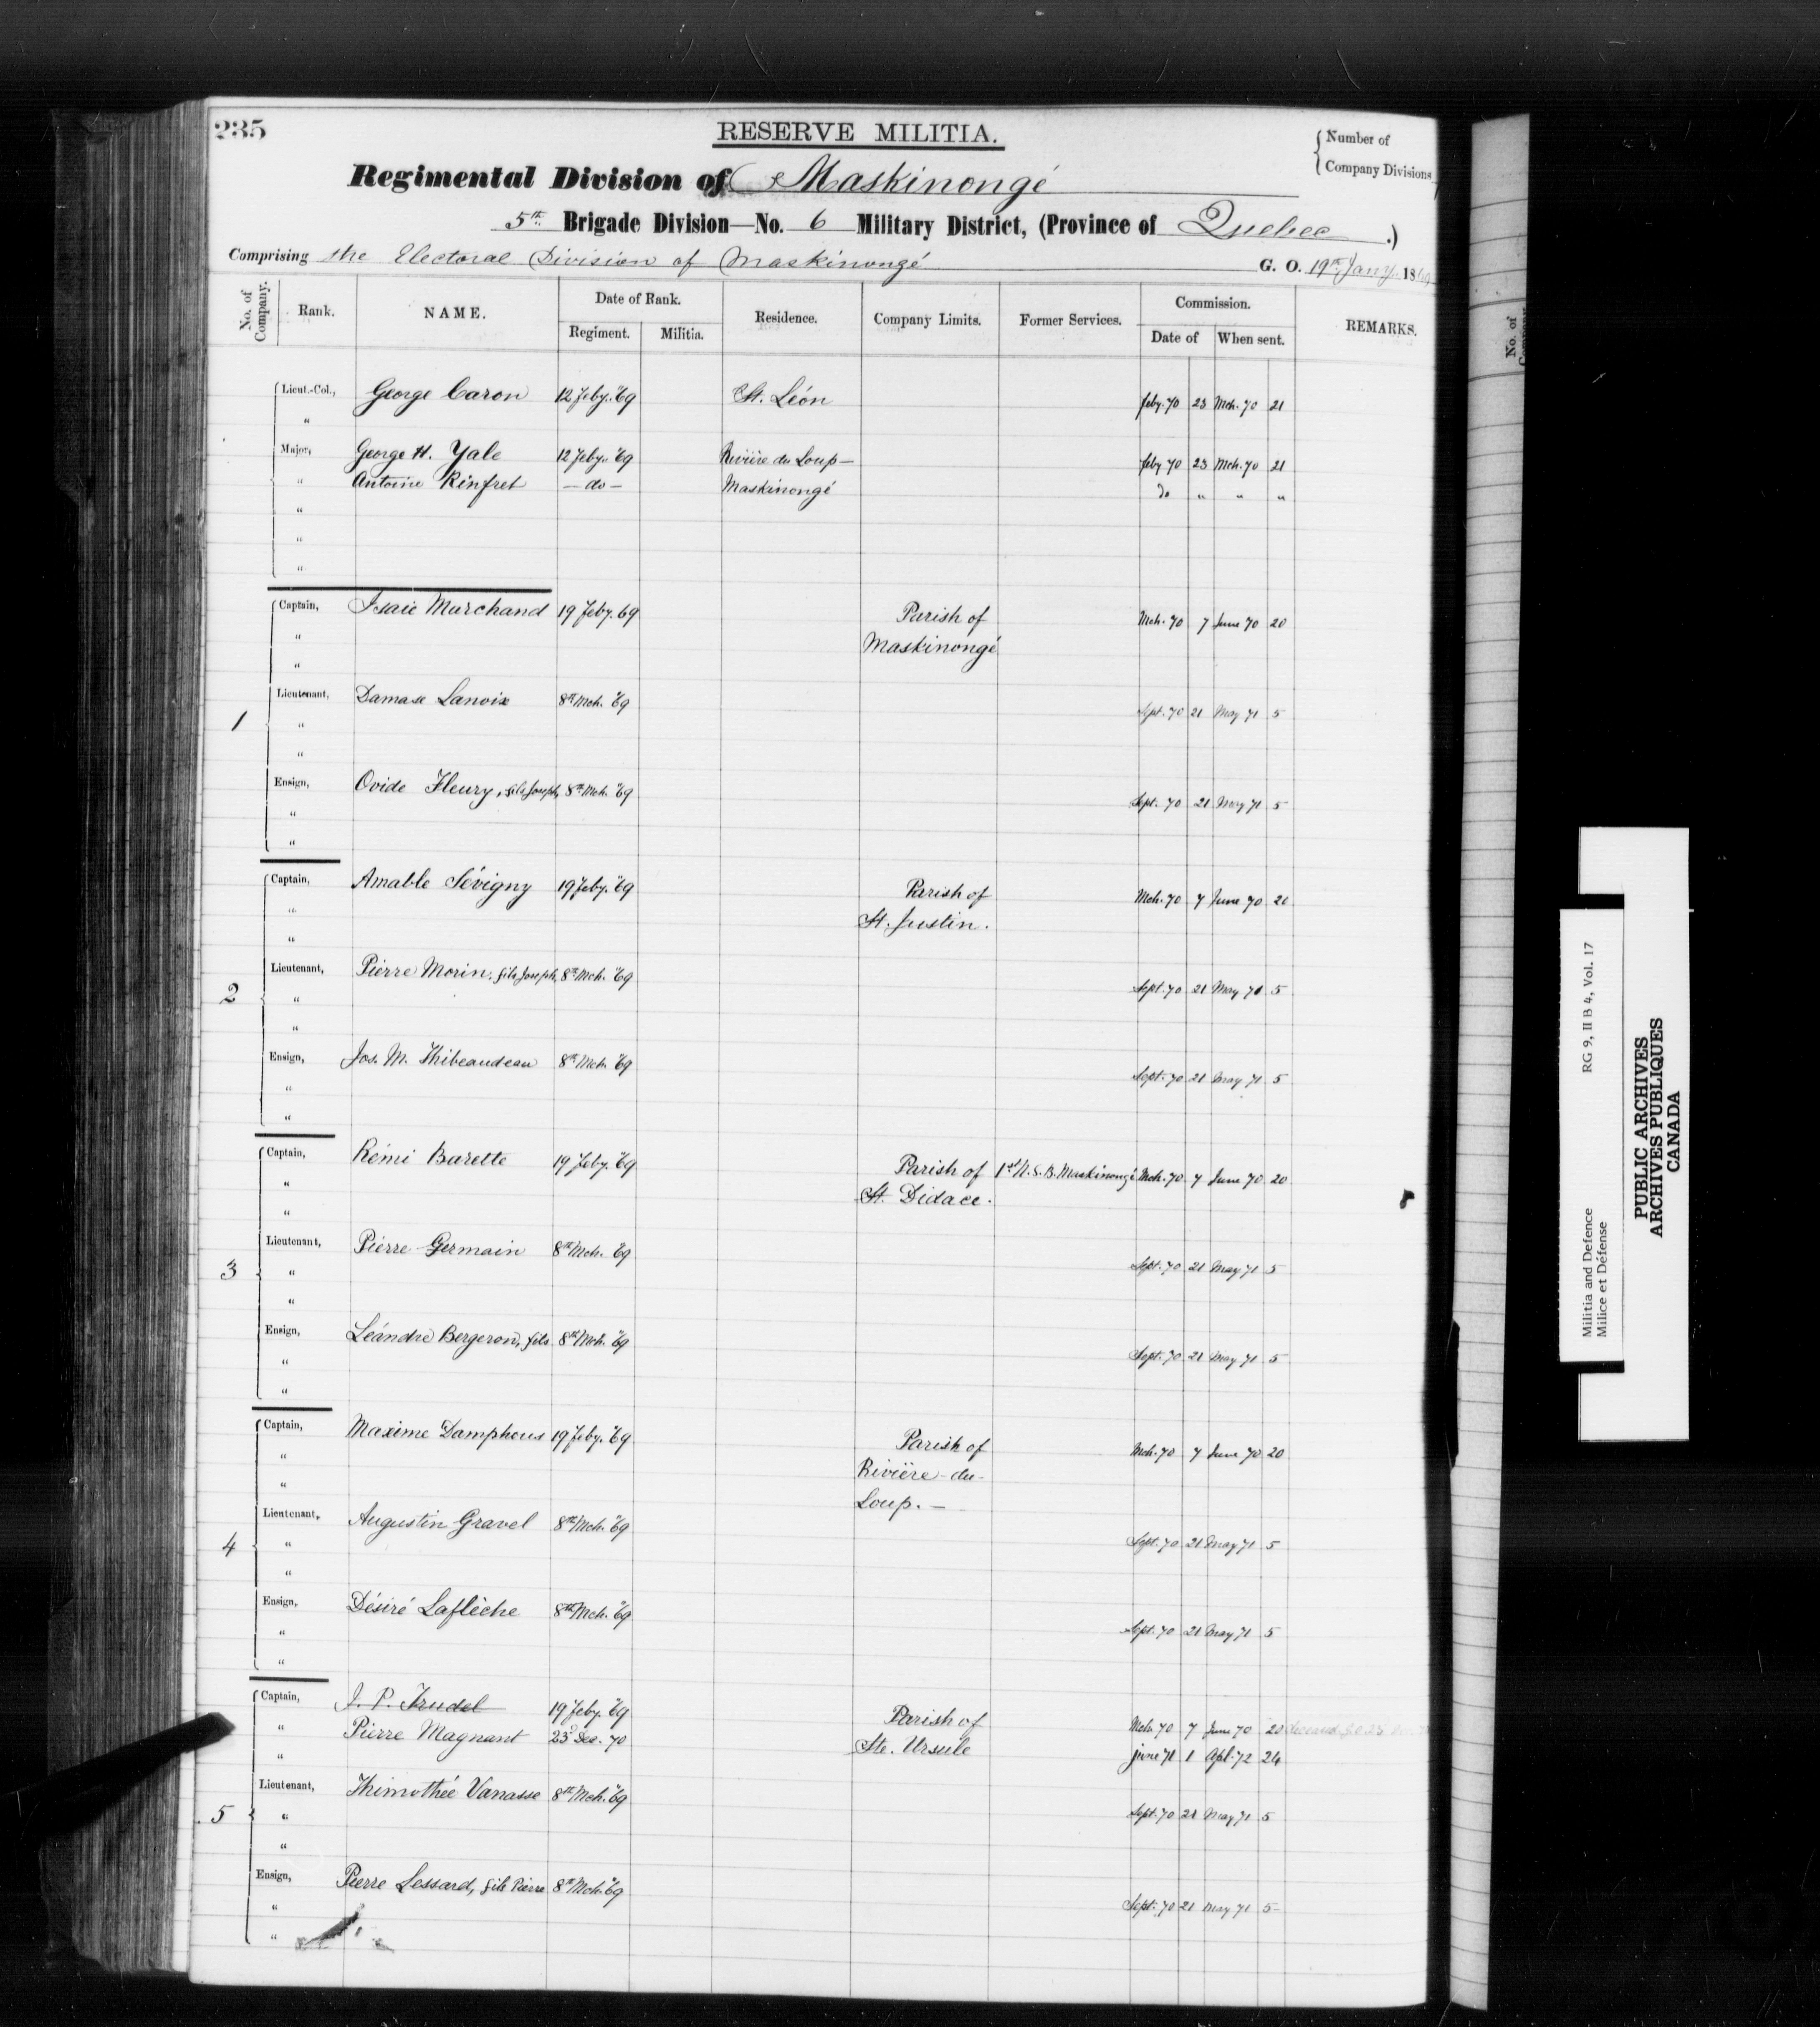 235
RESERVE MILITIA.
Number of
Company Divisions
Regimental Division of Maskinongé
5th Brigade Division—No. 6 Military District, (Province of Quebec .)
Comprising the Electoral Division of Maskinongé G. O. 19th Jany. 1869
No. of Company. Rank. NAME. Date of Rank. Regiment. Militia. Residence. Company Limits. Former Services. Commission. Date of When sent. REMARKS.
Lieut.-Col., George Caron 12 Feby. "69 St. Léon feby. 70 23 Mch. 70 21
"
Major, George H. Yale 12 Feby. "69 Rivière du Loup— feby 70 23 Mch. 70 21
" Antoine Rinfret — do — Maskinongé do " " "
"
"
"
Captain, Isaie Marchand 19 Feby. 69 Parish of Mch. 70 7 June 70 20
" Maskinongé
"
Lieutenant, Damase Lanoix 8th Mch. "69 Sept. 70 21 May 71 5
1 "
"
Ensign, Ovide Fleury, fils Joseph, 8th Mch. "69 Sept. 70 21 May 71 5
"
"
Captain, Amable Sévigny 19 Feby. "69 Parish of Mch. 70 7 June 70 20
" St. Justin.
"
Lieutenant, Pierre Morin, fils Joseph, 8th Mch. "69 Sept. 70 21 May 71 5
2 "
"
Ensign, Jos. M. Thibeaudeau 8th Mch. "69 Sept. 70 21 May 71 5
"
"
Captain, Rémi Barette 19 Feby. "69 Parish of 1st N. S. B. Maskinongé Mch. 70 7 June 70 20
" St. Didace.
"
Lieutenant, Pierre Germain 8th Mch. "69 Sept. 70 21 May 71 5
3 "
"
Ensign, Léandre Bergeron, fils 8th Mch. "69 Sept. 70 21 May 71 5
"
"
Captain, Maxime Damphous 19 Feby. "69 Parish of Mch. 70 7 June 70 20
" Rivière-du-
" Loup. —
Lieutenant, Augustin Gravel 8th Mch. "69 Sept. 70 21 May 71 5
4 "
"
Ensign, Désiré Laflèche 8th Mch. "69 Sept. 70 21 May 71 5
"
"
Captain, J. P. Trudel 19 Feby. "69 Parish of Mch. 70 7 June 70 20
" Pierre Magnant 23d Dec. 70 Ste. Ursule june 71 1 Apl. 72 24
"
Lieutenant, Thimothée Vanasse 8th Mch. "69 Sept. 70 21 May 71 5
5 "
"
Ensign, Pierre Lessard, fils Pierre 8th Mch. "69 Sept. 70 21 May 71 5
"
"
No. of
Company
Militia and Defence RG 9, II B 4, Vol. 17
Milice et Défense
PUBLIC ARCHIVES
ARCHIVES PUBLIQUES
CANADA